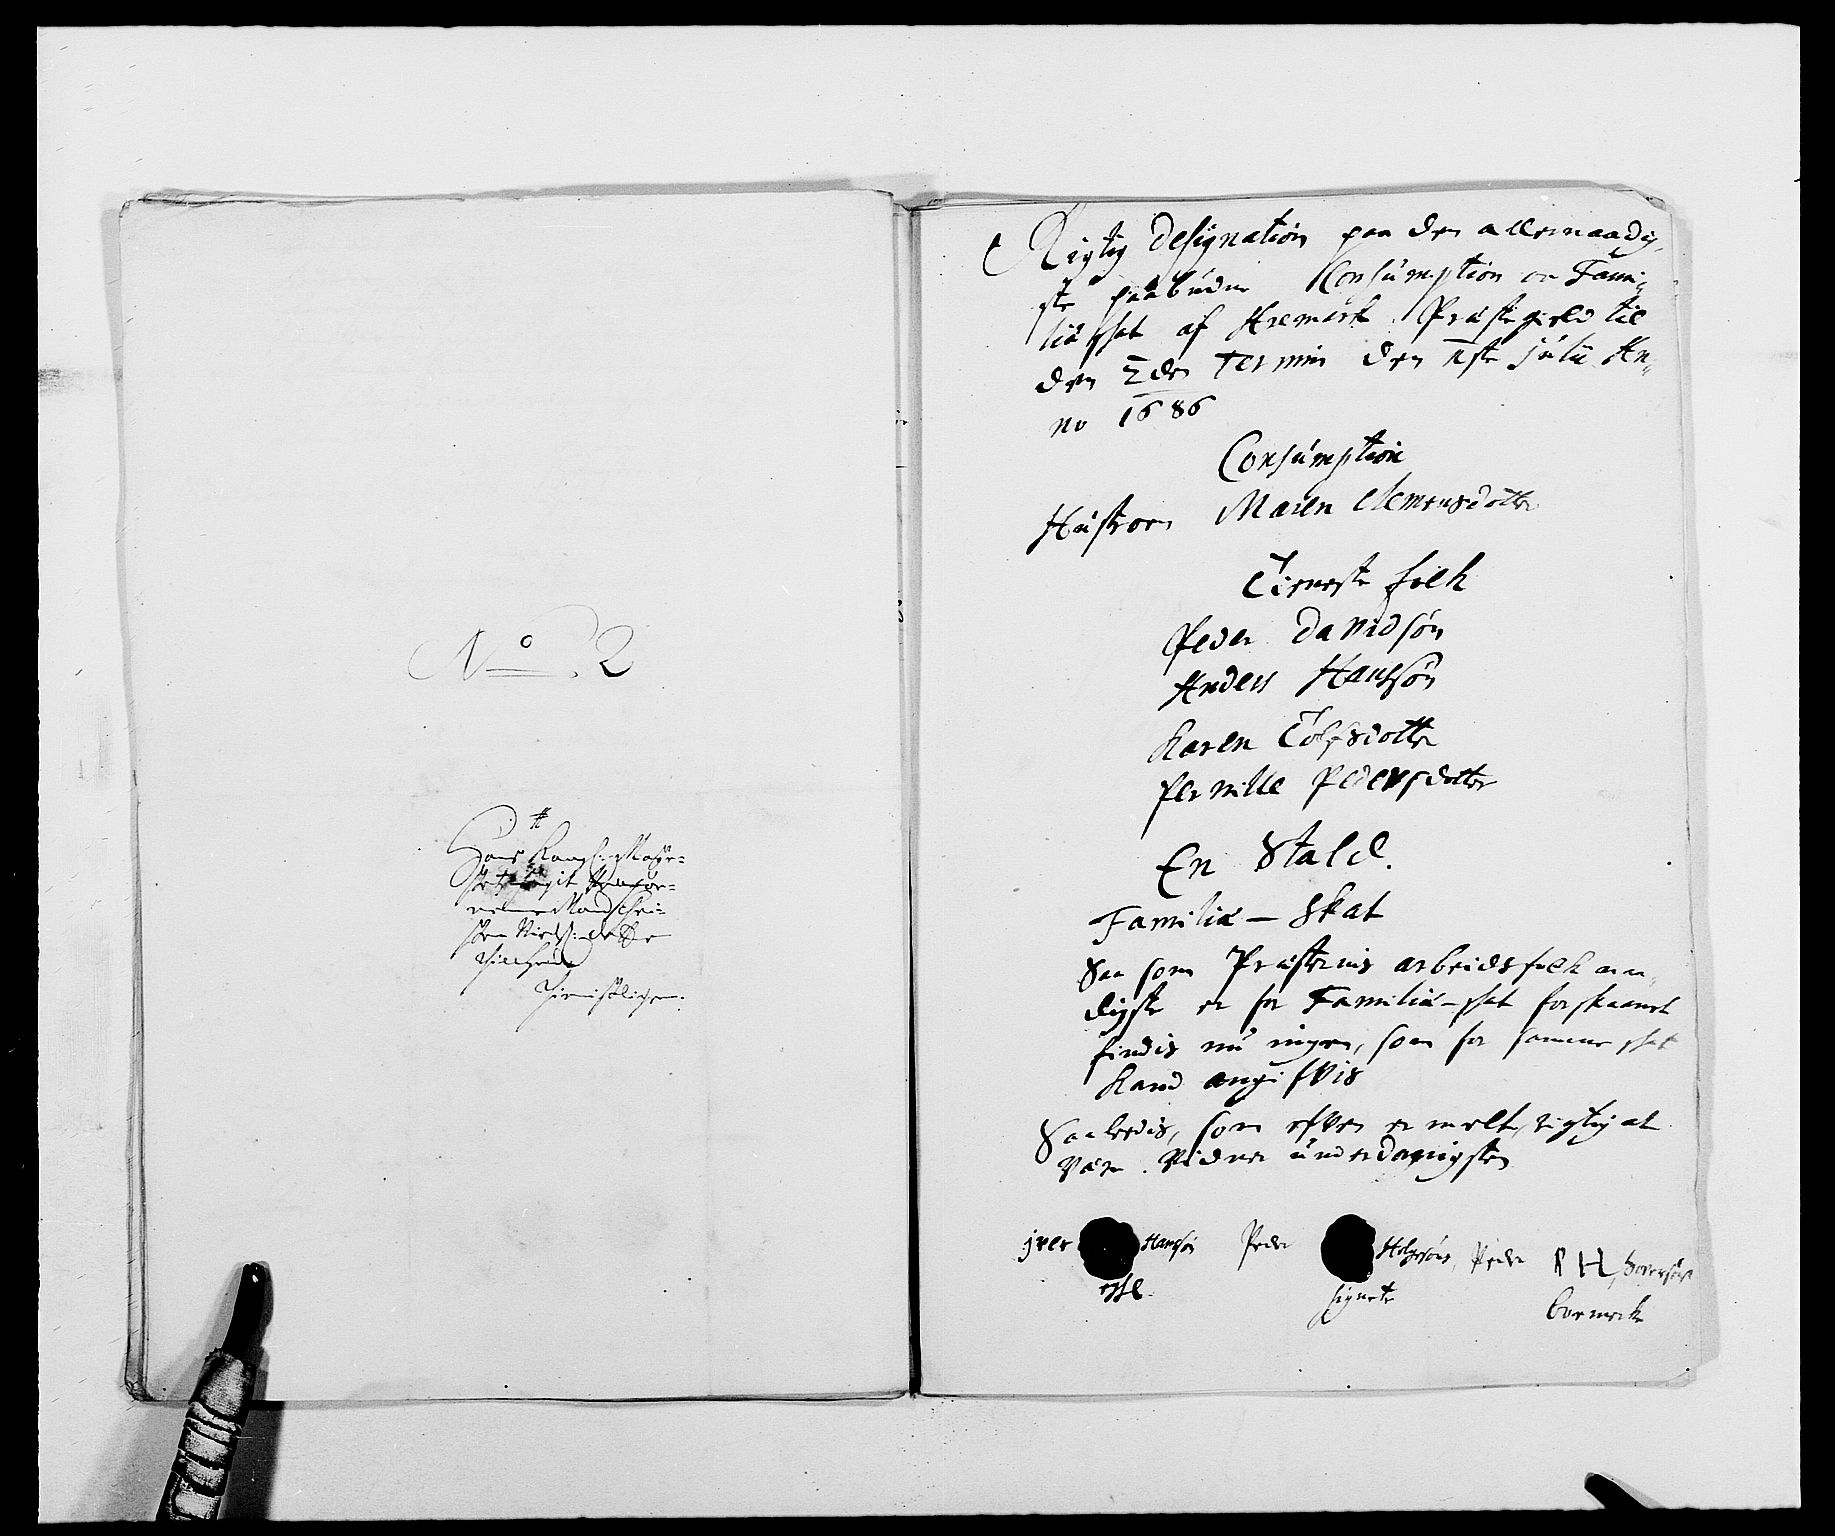 No. 2
Hans Kongl: Mayst:
Rigtig Designation paa den allernaadig-
ste paabudne Consumption oc Fami-
liæ skat af Aremark Præstegield til
den 2den Termin den 1ste Julii An-
no 1686
Consumption
Hustroen Maren Clemensdotter
Tieneste folk
Peder Davidsøn
Anders Hansøn
Karen Tolfsdotter
Pernille Pedersdotter
En Stald.
Familiæ-Skat
Saa som Præstens arbeidsfolk naa-
digst er for Familiæ-skat forskaanet
findis nu ingen, som for samme skat
kand angifvis
Saaledis, som ofven er melt, rigtig at
være vidner underdanigsten
Iver Hansøn Peder Holgersøns Peder P H Sørensøn
signete boemerke